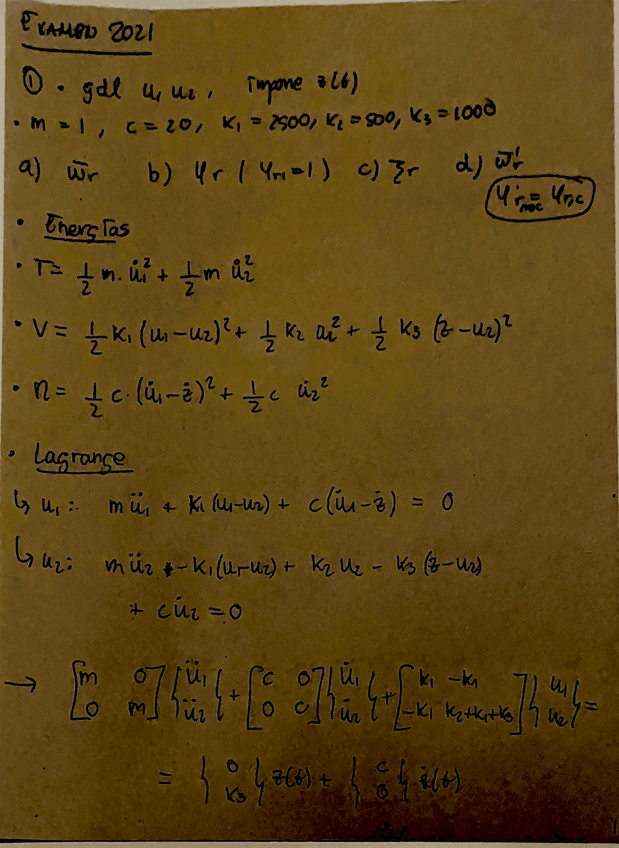 EXAMEN 2021
① • gdl u₁ u₂, impone z(t)
• m = 1, c = 20, K₁ = 2500, K₂ = 500, K₃ = 1000
a) ω̄r b) Ψr (Ψr1=1) c) ξr d) ω̄r'
• Energías
• T = 1/2 m. u̇₁² + 1/2 m u̇₂²
• V = 1/2 K₁ (u₁-u₂)² + 1/2 K₂ u₂² + 1/2 K₃ (z-u₂)²
• Ω = 1/2 c. (u̇₁-ż)² + 1/2 c u̇₂²
• Lagrange
↳ u₁: m ü₁ + K₁ (u₁-u₂) + c (u̇₁-ż) = 0
↳ u₂: m ü₂ + -K₁ (u₁-u₂) + K₂ u₂ - K₃ (z-u₂)
+ c u̇₂ = 0
→ [m 0; 0 m] {ü₁; ü₂} + [c 0; 0 c] {u̇₁; u̇₂} + [K₁ -K₁; -K₁ K₂+K₁+K₃] {u₁; u₂} =
= {0; K₃} z(t) + {c; 0} ż(t)
1